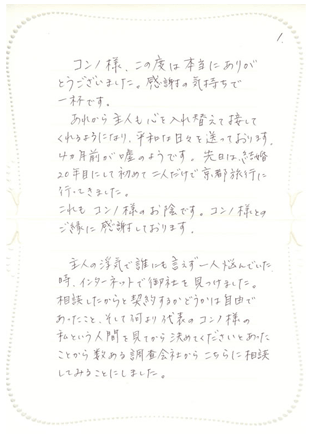 1.
コンノ様、この度は本当にありが
とうございました。感謝の気持ちで
一杯です。
あれから主人も心を入れ替えて接して
くれるようになり、平和な日々を送っております。
4ヵ月前が嘘のようです。先日は、結婚
20年目にして初めて二人だけで京都旅行に
行ってきました。
これも コンノ様のお陰です。コンノ様との
ご縁に感謝しております。
主人の浮気で誰にも言えず一人悩んでいた
時、インターネットで御社を見つけました。
相談したからと契約するかどうかは自由で
あったこと、そして何より代表のコンノ様の
私という人間を見てから決めてくださいとあった
ことから数ある調査会社からこちらに相談
してみることにしました。